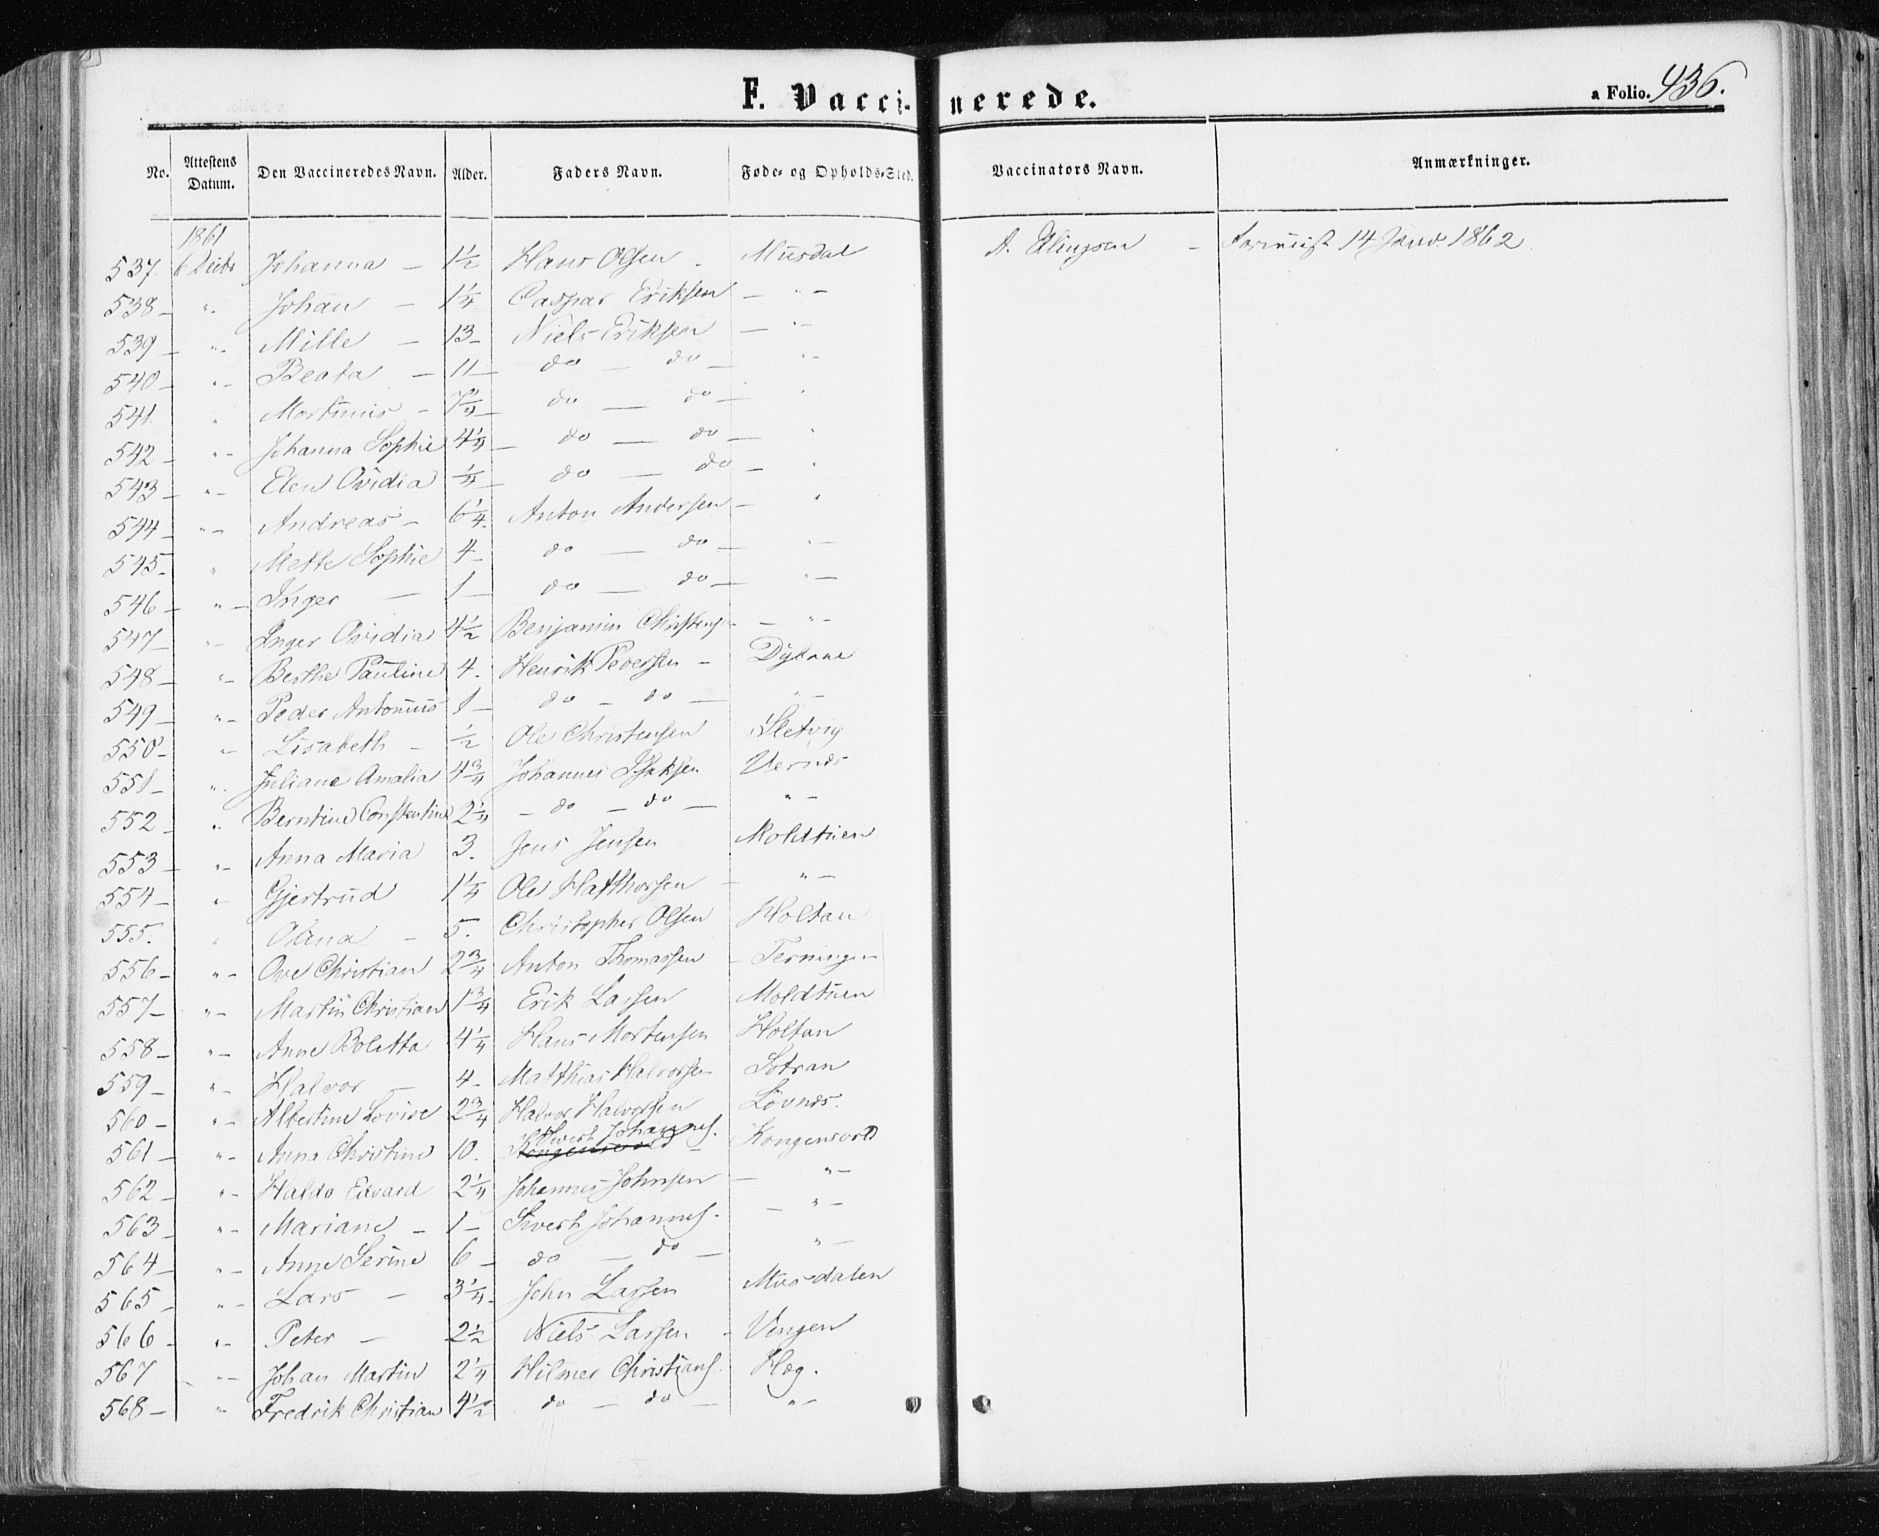 F. Vaccinerede. a Folio. 436.
No. Attestens Datum. Den Vaccineredes Navn. Alder. Faders Navn. Føde- og Opholds-Sted. Vaccinators Navn. Anmærkninger.
1861
537. 6 Johanna — 1½ Hans Olsen - Musdal A. - 14 1862
538 — " Johan — 1¼ Caspar Eriksen — " —
539 — " — Mille — 13 — Niels Eriksen — " —
540 — " — Beata — 11 — do — do — " —
541. " Martinus — 7¾ — do — do — "
542 — " — Johanna Sophie 4¼ — do — do — "
543 — " — Elen Ovidia ¼ — do — do — "
544 — " — Andreas — 6¼. Anton Andersen — "
545 — " Mette Sophie 4 — do — do — " —
546 — " — Inger — 1 — do — do — " —
547 — " — Inger Ovidia 4½ Benjamin Christens — " —
548 — " — Berthe Pauline 4. Henrik Pedersen —
549 — " — Peder Antonius 1 — do — do — " —
550 — " — Lisabeth — ½ Ole Christensen Sletvig
551 — " — Juliane Amalia 4¾ Johannes Isaksen Uernes
552 — " Berntine Constentine 2¼ — do — do — " —
553 — " — Anna Maria 3. Jens Jensen Moldtuen
554 — " Gjertrud 1¼ Ole Halthorsen — " —
555. " Olina — 5. Christopher Olsen Holtan
556 — " — Ove Christian 2¾ Anton Thomassen — Terningen
557 — " — Martin Christian 1¾ Erik Larsen Moldtuen
558 — " — Anne Boletta 4¼ Hans Mortensen Holtan
559 — " — Halvor — 4 — Matthias Halvorsen Sotran
560 — " — Albertine Lovise 2¾ Halvor Halvorsen Lovnes.
561 — " — Anna Christine 10. Sivert Johannes. Kongensvold
562 — " — Haldo Edvard 2¼ Johannes Johnsen — " —
563 — " — Mariane — 1 — Sivert Johannes. — " —
564 — " — Anne Serine 6 — do — do — " —
565 — " — Lars — 3¼ — John Larsen Musdalen
566 — " — Peter — 2½ Niels Larsen — Vengen
567 " — Johan Martin 2¼ Hilmer Christians. Hæg.
568 — " Fredrik Christian 4½ do — do — " —